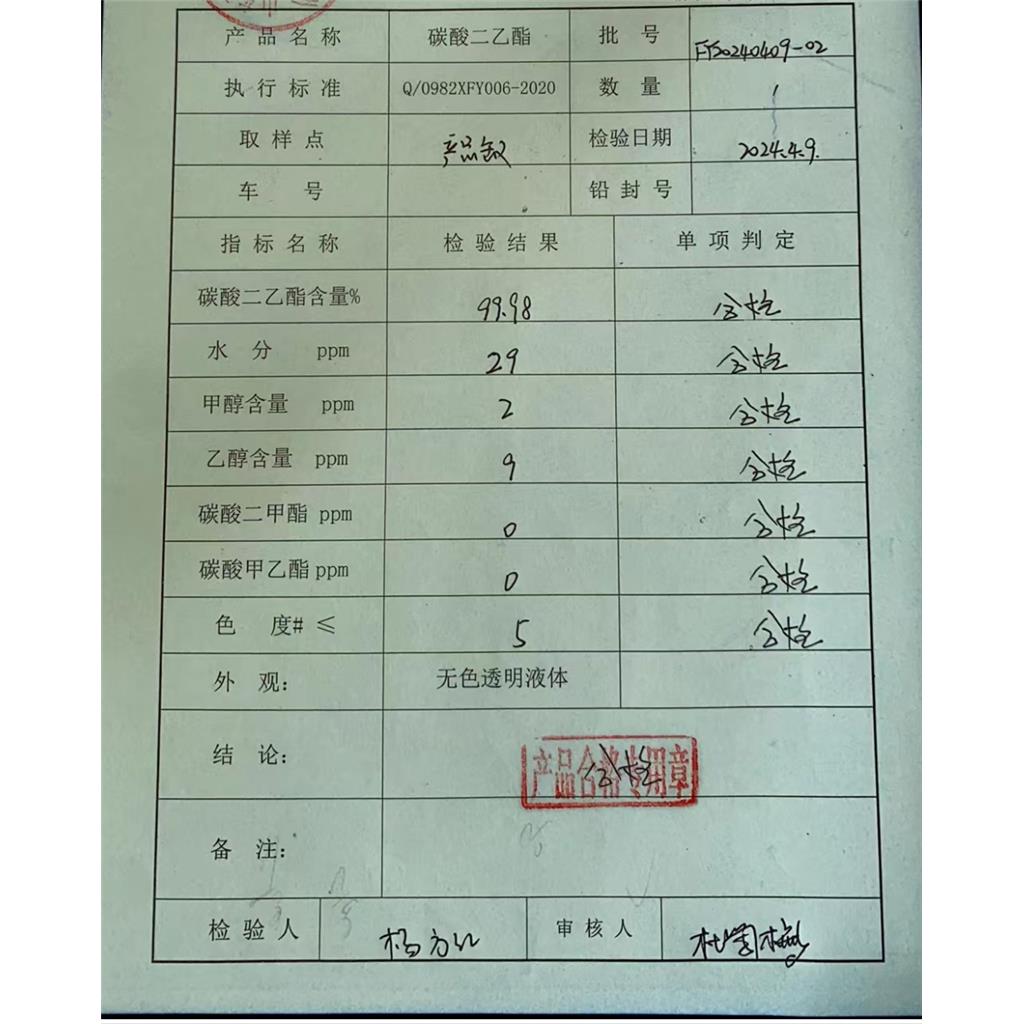 产品名称 碳酸二乙酯 批号 FY20240409-02
执行标准 Q/0982XFY006-2020 数量 1
取样点 产品罐 检验日期 2024.4.9.
车号 铅封号
指标名称 检验结果 单项判定
碳酸二乙酯含量% 99.98 合格
水分 ppm 29 合格
甲醇含量 ppm 2 合格
乙醇含量 ppm 9 合格
碳酸二甲酯 ppm 0 合格
碳酸甲乙酯 ppm 0 合格
色度# ≤ 5 合格
外观: 无色透明液体
结论: 合格
产品合格专用章
备注:
检验人 审核人